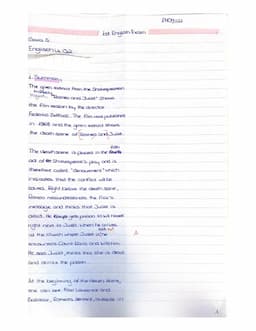 1st English Exam
English LK Q2
1. Summary:
The given extract from the Shakespearean
"Romeo and Juliet" shows
the film version by the director
Federico Zeffirelli. The film was published
in 1968 and the given extract shows
the death scene of Romeo and Juliet.
The death scene is placed in the
act of Shakespeare's play and is
therefore called "denouement" which
indicates that the conflict will be
solved. Right before the death scene,
Romeo misunderstands the friar's
message and thinks that Juliet is
dead. He poison to kill himself
right next to Juliet when he arrives
at the church where Juliet is
encounters Count Paris and
He sees Juliet, thinks that she is dead
and drinks the poison.
At the beginning of the death scene,
one can see Friar Lawrence and
Balthasar, Romeo's servant,